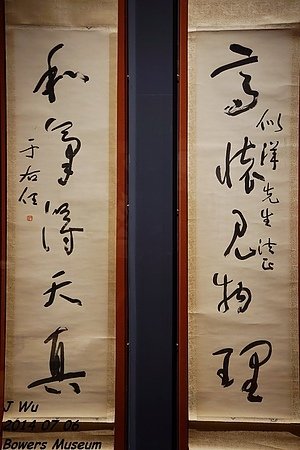 高懷見物理
似洋先生法正
和氣得天真
于右任
J Wu
2014 07 06
Bowers Museum